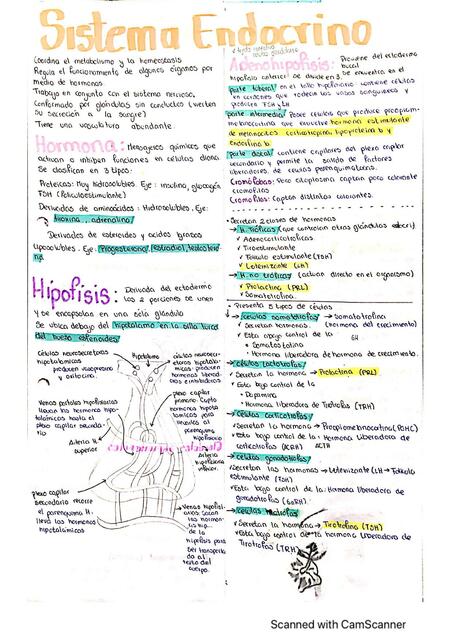 Sistema Endocrino
Coordina el metabolismo y la homeostasis
Regula el funcionamiento de algunos organos por
medio de hormonas.
Trabaja en conjunto con el sistema nervioso.
Conformado por glándulas sin conductos (vierten
su secreción a la sangre)
Tiene una vasculatura abundante.
Hormona: Mensajeros químicos que
activan o inhiben funciones en células diana.
Se clasifican en 3 tipos:
Proteicas: Muy hidrosolubles. Eje: insulina, glucagón,
TSH (foliculoestimulante)
Derivados de aminoácidos: Hidrosolubles. Eje:
tiroxina, adrenalina/
Derivados de esteroides y acidos grasos
Liposolubles. Eje: Progesterona, Estradiol, testosterona
Hipofisis: Derivada del ectodermo
los 2 porciones se unen
y se encapsulan en una sola glándula
Se ubica debajo del hipotalamo en la silla turca
del hueso esfenoides/
células neurosecretoras
hipotalámicas
producen vasopresina
y oxitocina.
hipotalamo
células neurosecretoras
hipotalámicas:
producen hormonas
liberadoras
e inhibidoras
Venas portales hipofisiarias
llevan las hormonas hipotalámicas
hasta el
plexo capilar secundario
Arteria H.
superior
plexo capilar
primario: Capta
hormonas hipotalamicas
para
llevarlas al
parenquima
hipofisiario
Arteria
hipofisiaria
inferior.
plexo capilar
secundario recorre
el parenquima H.
lleva las hormonas
hipotalámicas
Venas hipofisiarias
sacan las
hormonas
de
la hipofisis para
ser transportada
al
resto del
cuerpo.
Adenohipofisis: Proviene del ectodermo
bucal
hipofisis anterior se divide en 3
parte tuberal/ en el tallo hipofisiario. contiene células
en cordones que rodean los vasos sanguineos y
produce FSH y LH
parte intermedia/ Posee celulas que produce proopiomelanocortina
que envuelve hormona estimulante
de melanocitos corticotropina, lipoproteina b y
Endorfina b
parte distal/ contiene capilares del plexo capilar
secundario y permite la salida de factores
liberadores de celulas parenquimatosas.
Cromófobas: Poco citoplasma captan poco colorante
cromofilico
Cromofilas: Captan distintos colorantes.
Secretan 2 clases de hormonas
→ H. Tróficas/ (que controlan otras glándulas)
✓ Adenocorticotroficas
✓ Tiroestimulante
✓ Foliculo estimulante (TSH)
✓ Luteinizante (LH)
→ H. no tróficas/ (actuan directo en el organismo)
✓ Prolactina (PRL)
✓ Somatotrofina.
Presenta 5 tipos de células
células somatotrofas/ → Somatotrofina
✓ Secretan hormonas. (hormona del crecimiento)
✓ Esta bajo control de la GH
• Somatostatina
• Hormona liberadora de hormona de crecimiento.
→ células lactotrofas/
✓ Secretan la hormona → Prolactina (PRL)
✓ Esta bajo control de la
• Dopamina
• Hormona liberadora de Tirotrofas (TRH)
→ células corticotrofas/
✓ Secretan la hormona → Propiomelanocortina (POMC)
✓ Esta bajo control de la: Hormona Liberadora de
corticotrofas (CRH) ACTH
→ células gonadotrofas/
Secretan las hormonas → Luteinizante (LH → Foliculo
estimulante (TSH)
✓ Esta bajo control de la: Hormona liberadora de
gonadotrofas (GnRH)
→ células tirotrofas/
✓ Secretan la hormona → Tirotrofina (TSH)
✓ Esta bajo control de la hormona liberadora de
Tirotrofas (TRH)
Scanned with CamScanner